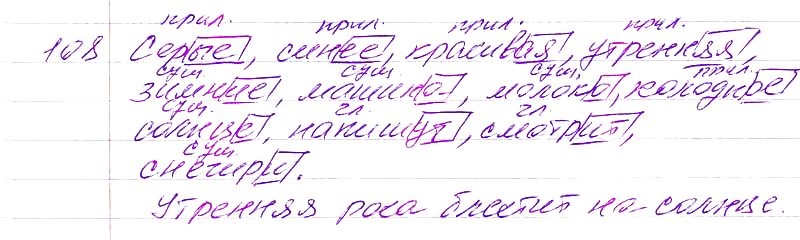 прил. прил. прил. прил.
108 Серые, синее, красивая, утренняя,
сущ. сущ. сущ. прил.
зимние, машина, молоко, холодное
сущ. гл. гл.
солнце, напишут, смотрит,
сущ.
снегири.
Утренняя роса блестит на солнце.